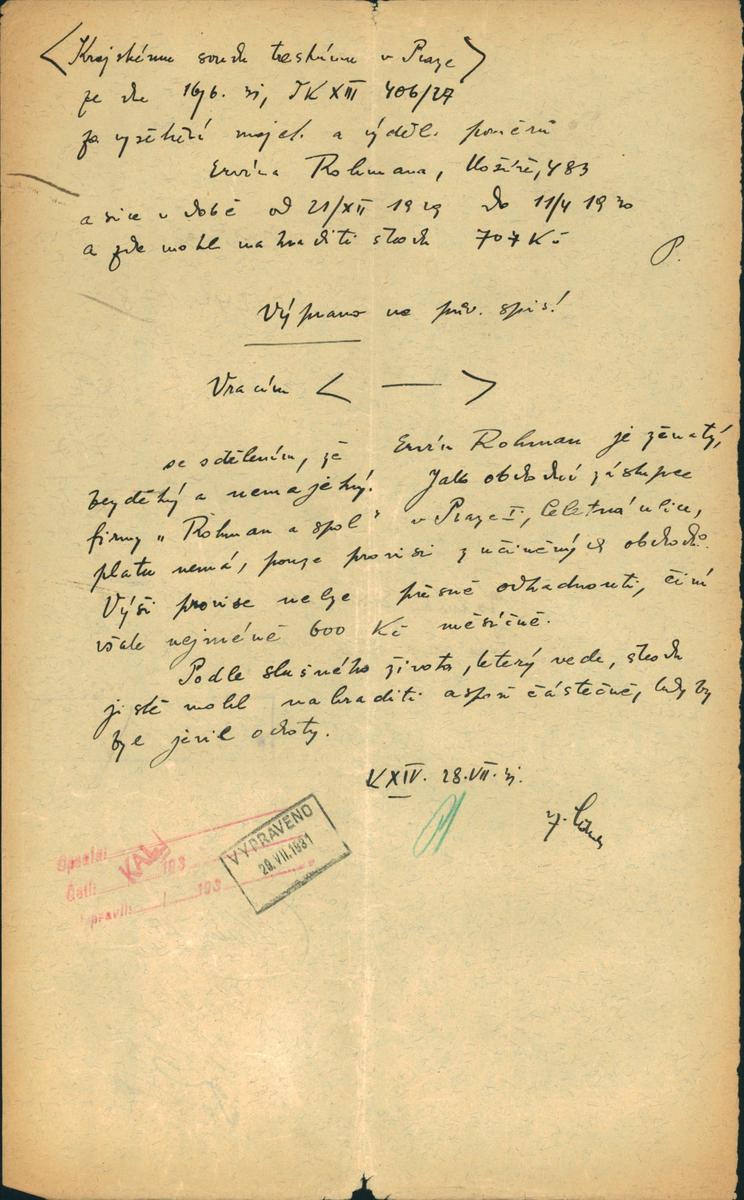 <Krajskému soudu trestnímu v Praze>
ze dne 16/6. 31, Tk XIII 406/27
za vyšetření majet. a výděl. poměrů
Ervína Rohmana, Košíře, 483
a sice v době od 21/XII 1929 do 11/4 1930
a zde mohl nahraditi škodu 707 Kč
P.
Výprava na pův. spis!
Vracím < — >
se sdělením, že Ervín Rohman je ženatý,
bezdětný a nemajetný. Jako obchodní zástupce
firmy „Rohman a spol" v Praze I, Celetná ulice,
platu nemá, pouze provisi z učiněných obchodů.
Výši provise nelze přesně odhadnouti, činí
však nejméně 600 Kč měsíčně.
Podle slušného života, který vede, škodu
jistě mohl nahraditi aspoň částečně, kdyby
byl jevil ochoty.
KXIV. 28.VII.31.
Opsala:
KAL
193
Četli:
193
VYPRAVENO
29.VII.1931